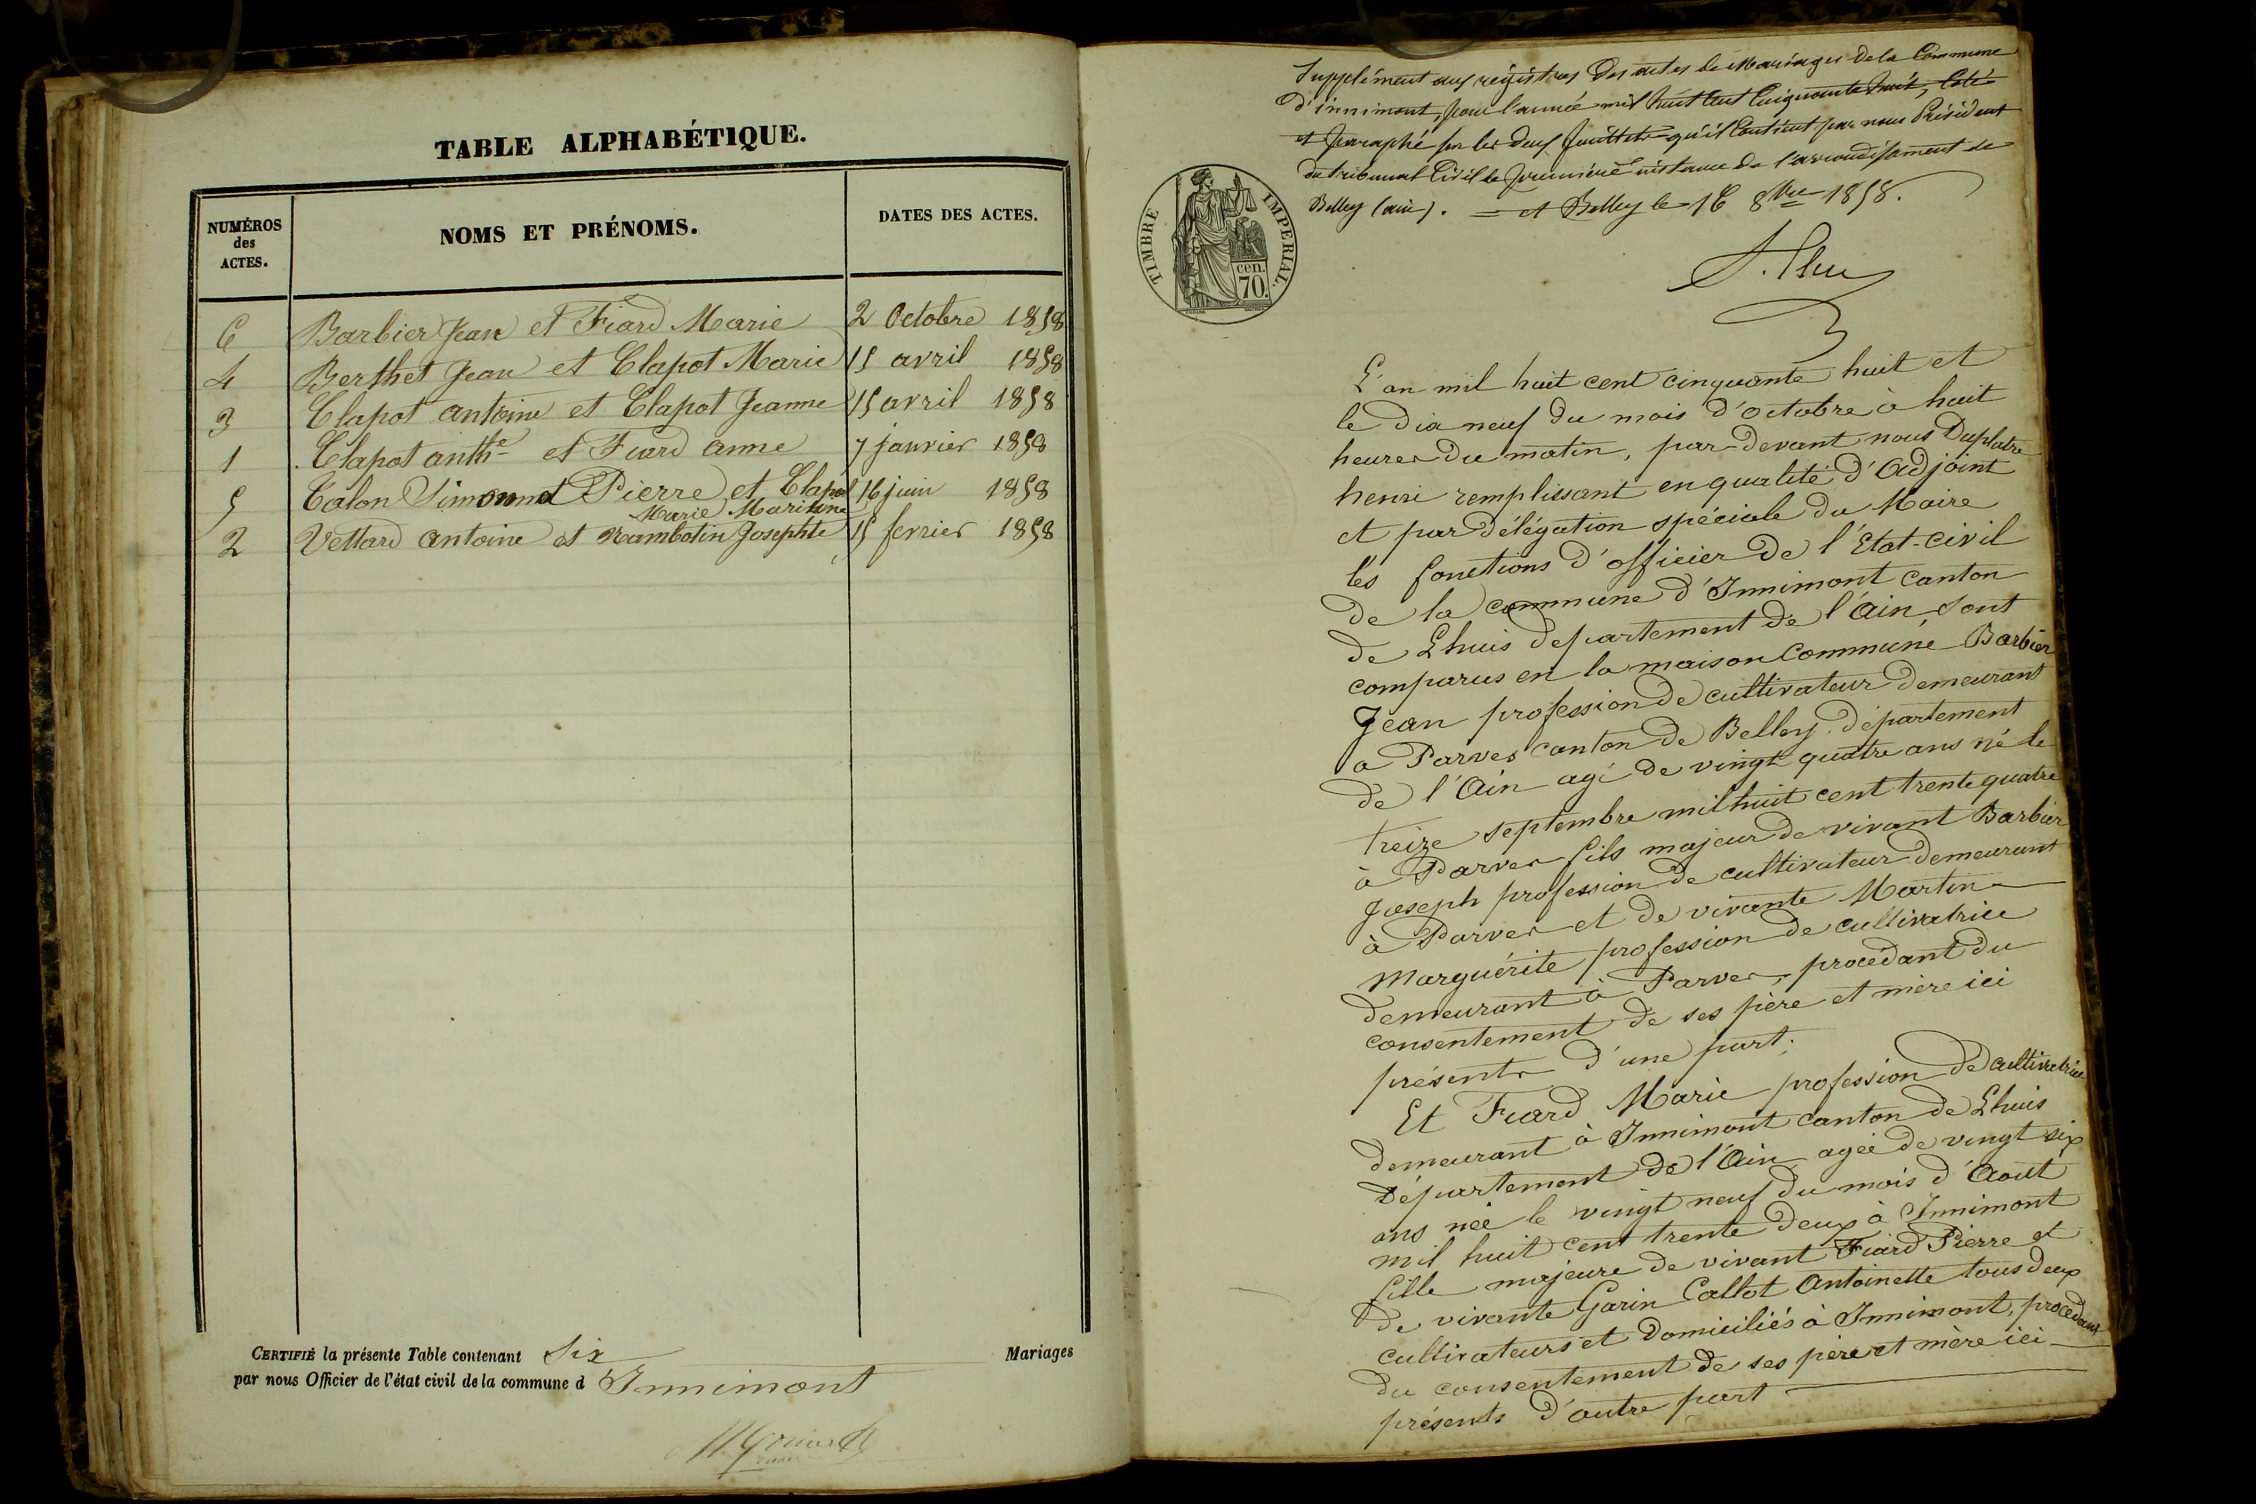 TABLE ALPHABÉTIQUE.
NUMÉROS
des
ACTES.
NOMS ET PRÉNOMS.
DATES DES ACTES.
6 Barbier Jean et Fiard Marie 2 Octobre 1858
4 Berthet Jean et Clapot Marie 15 avril 1858
3 Clapot antoine et Clapot Jeanne 15 avril 1858
1 Clapot anthe et Fiard anne 7 janvier 1858
5 Calon Simonnet Pierre et Clapot 16 juin 1858
Marie Maritine
2 Vettard antoine et Rambotin Josephte 15 fevrier 1858
CERTIFIÉ la présente Table contenant Six Mariages
par nous Officier de l'état civil de la commune d Innimont
Supplément aux régistres des actes de Mariages de la Commune
d'innimont, pour l'année mil huit Cent Cinquante huit, Coté
et Paraphé sur les deux feuillets qu'il Contient par nous Président
du tribunal Civil de première instance de l'arrondissement de
Belley (ain). = et Belley le 16 8bre 1858.
TIMBRE IMPERIAL.
70 cen.
L'an mil huit cent cinquante huit et
le dix neuf du mois d'octobre à huit
heures du matin, par-devant nous Duplatre
henri remplissant en qualité d'Adjoint
et par délégation spéciale du Maire
les fonctions d'officier de l'Etat-civil
de la commune d'Innimont canton
de Lhuis departement de l'Ain, sont
comparus en la maison Commune Barbier
Jean profession de cultivateur demeurant
a Parves canton de Belley département
de l'Ain agé de vingt quatre ans né le
treize septembre mil huit cent trente quatre
à Parves fils majeur de vivant Barbier
Joseph profession de cultivateur demeurant
à Parves et de vivante Martin
Marguérite profession de cultivatrice
demeurant à Parves, procédant du
consentement de ses père et mère ici
présents d'une part;
Et Fiard Marie profession de cultivatrice
demeurant à Innimont canton de Lhuis
Département de l'Ain agée de vingt six
ans née le vingt neuf du mois d'Aout
mil huit cent trente deux à Innimont
fille majeure de vivant Fiard Pierre et
de vivante Garin Callot Antoinette tous deux
cultivateurs et domiciliés à Innimont, procédant
du consentement de ses père et mère ici
présents d'autre part